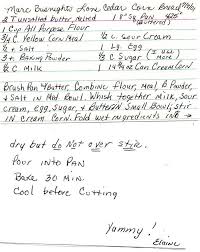 Marc Burnight's Lone Cedar Corn Bread
8 T unsalted butter, melted 1 8" Sq. PAN 425°
1 Cup All Purpose Flour (buttered)
3/4 C. Yellow Corn Meal 1/2 C. Sour Cream
1/2 t Salt 1 Lg. Egg
3 t. Baking Powder 1/2 C Sugar
1/2 C Milk 1 14 3/4 oz Can Cream Corn
Brush Pan w Butter, Combine Flour, Meal, B Powder,
& Salt in Med Bowl. Whisk together Milk, Sour
Cream, egg, Sugar, & Butter in Small Bowl, Stir
in Cream Corn. Fold wet ingredients into →
dry but do Not over stir.
Pour into Pan
Bake 30 Min.
Cool before Cutting
Yummy!
Elaine